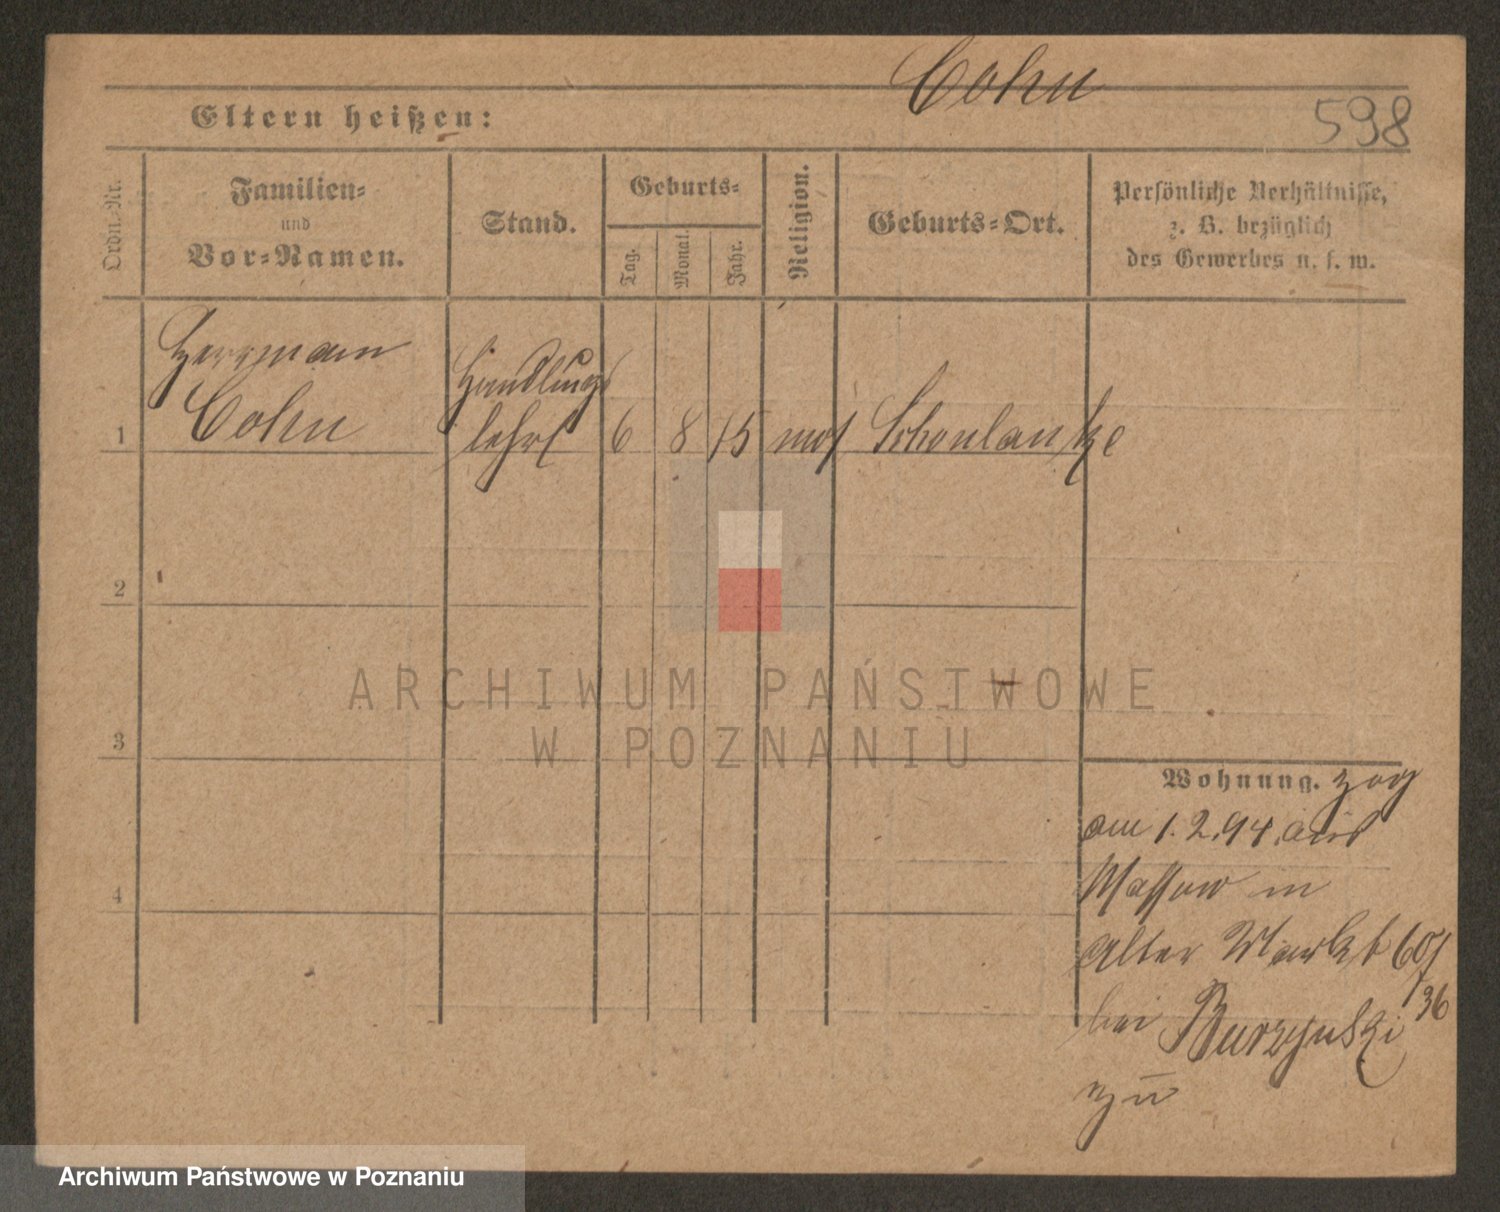 Cohn
598
Eltern heißen:
Ordn.-Nr.
Familien-
und
Vor-Namen.
Stand.
Geburts-
Tag.
Monat.
Jahr.
Religion.
Geburts-Ort.
Persönliche Verhältnisse,
z. B. bezüglich
des Gewerbes u. s. w.
Herrmann
Cohn
Handlungs
lehrl
1 6 8 75 mos Schönlanke
2
3
4
Wohnung. zog
am 1.2.94. aus
Massow in
Alter Markt 60/
36
bei Burzynski
zu
ARCHIWUM PAŃSTWOWE
W POZNANIU
Archiwum Państwowe w Poznaniu